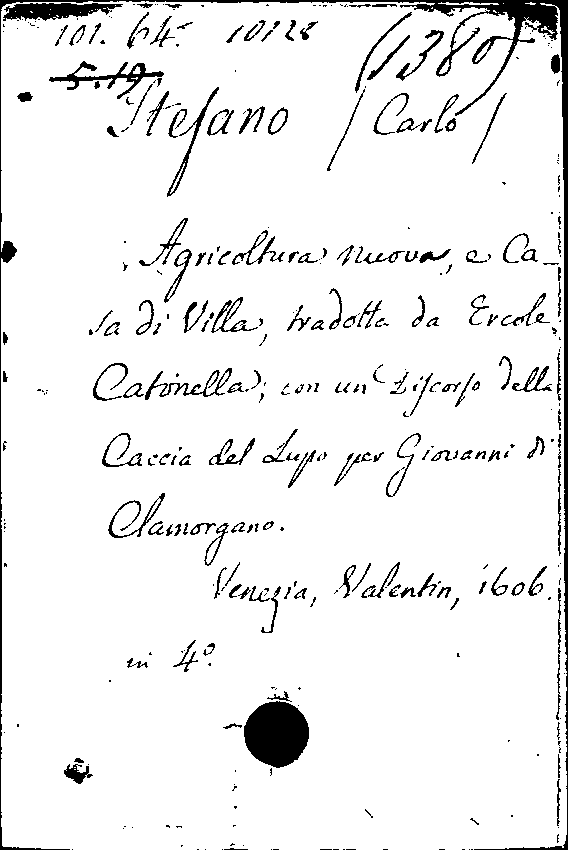 101. 64. 10128 (1380)
5.19
Stefano (Carlo)
Agricoltura nuova, e Ca-
sa di Villa, tradotta da Ercole
Catonella; con un Discorso della
Caccia del Lupo per Giovanni di
Clamorgano.
Venezia, Valentin, 1606.
in 4º.